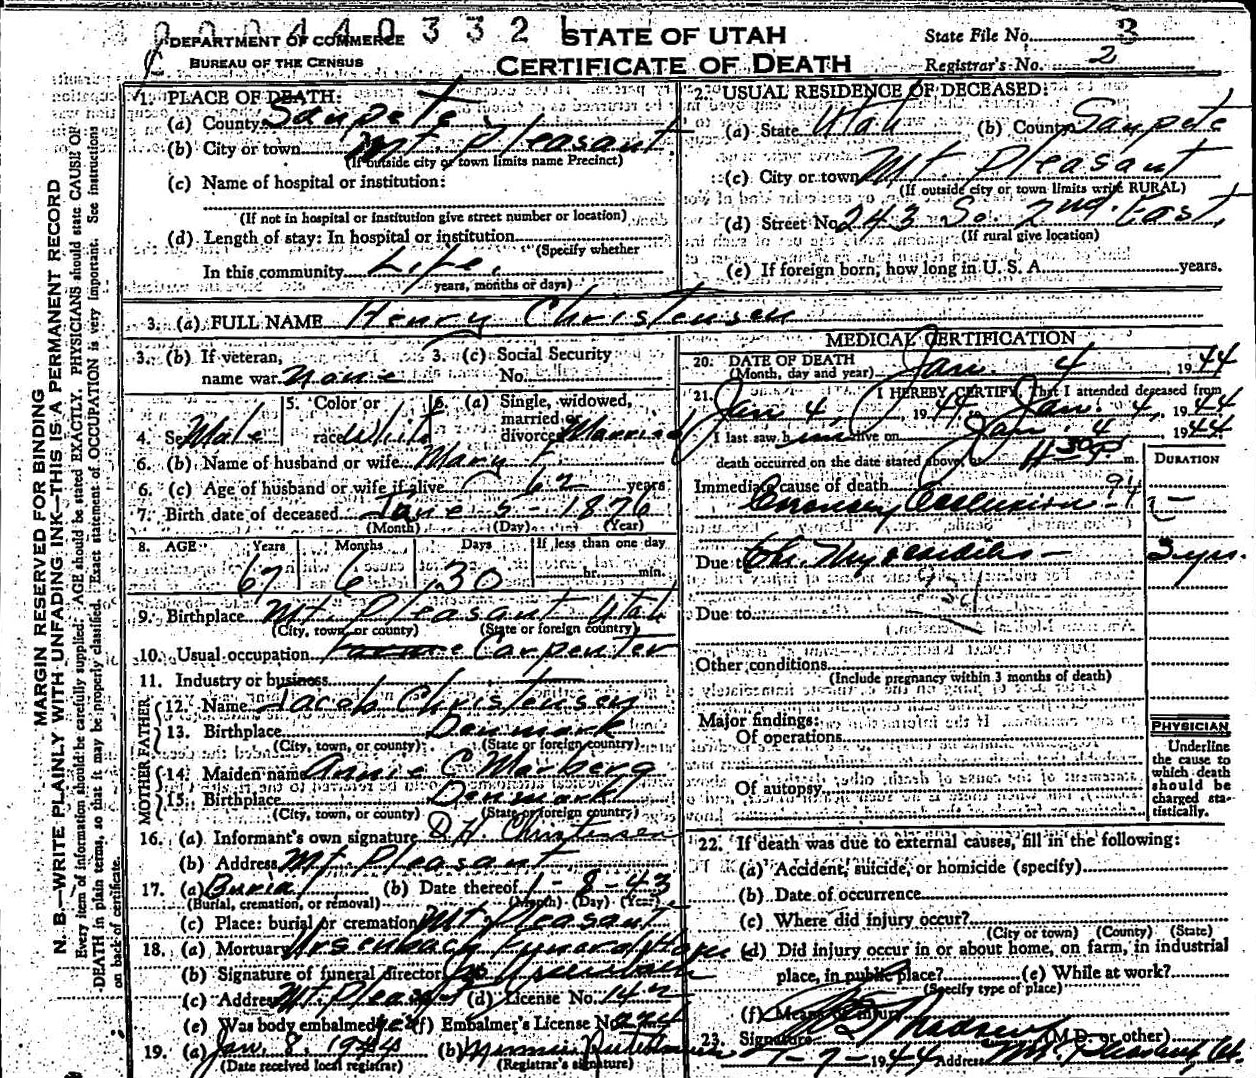 0004403321
DEPARTMENT OF COMMERCE
BUREAU OF THE CENSUS
STATE OF UTAH
CERTIFICATE OF DEATH
State File No. 3
Registrar's No. 2
MARGIN RESERVED FOR BINDING
N. B.—WRITE PLAINLY WITH UNFADING INK—THIS IS A PERMANENT RECORD
Every item of information should be carefully supplied. AGE should be stated EXACTLY. PHYSICIANS should state CAUSE OF
DEATH in plain terms, so that it may be properly classified. Exact statement of OCCUPATION is very important. See instructions
on back of certificate.
1. PLACE OF DEATH:
(a) County Sanpete
(b) City or town Mt. Pleasant
(If outside city or town limits name Precinct)
(c) Name of hospital or institution:
(If not in hospital or institution give street number or location)
(d) Length of stay: In hospital or institution
(Specify whether
In this community Life.
years, months or days)
2. USUAL RESIDENCE OF DECEASED:
(a) State Utah (b) County Sanpete
(c) City or town Mt. Pleasant
(If outside city or town limits write RURAL)
(d) Street No. 243 So. 2nd. East
(If rural give location)
(e) If foreign born, how long in U. S. A. years.
3. (a) FULL NAME Henry Christensen
3. (b) If veteran, name war None
3. (c) Social Security No.
4. Sex Male
5. Color or race White
6. (a) Single, widowed, married or divorced Married
6. (b) Name of husband or wife Mary F
6. (c) Age of husband or wife if alive 62 years
7. Birth date of deceased June 5 - 1876
(Month) (Day) (Year)
8. AGE Years Months Days If less than one day
67 6 30 hr. min.
9. Birthplace Mt. Pleasant Utah
(City, town, or county) (State or foreign country)
10. Usual occupation Carpenter
11. Industry or business
FATHER
12. Name Jacob Christensen
13. Birthplace Denmark
(City, town, or county) (State or foreign country)
MOTHER
14. Maiden name Annie C
15. Birthplace Denmark
(City, town, or county) (State or foreign country)
16. (a) Informant's own signature D. H. Christensen
(b) Address Mt. Pleasant
17. (a) Burial (b) Date thereof 1-8-43
(Burial, cremation, or removal) (Month) (Day) (Year)
(c) Place: burial or cremation Mt. Pleasant
18. (a) Mortuary Ursenbach Funeral Home
(b) Signature of funeral director Ursenbach
(c) Address Mt. Pleasant (d) License No.
(e) Was body embalmed yes (f) Embalmer's License No. 274
19. (a) Jan. 8, 1944 (b)
(Date received local registrar) (Registrar's signature)
MEDICAL CERTIFICATION
20. DATE OF DEATH
(Month, day and year) Jan. 4, 1944
21. I HEREBY CERTIFY, That I attended deceased from
Jan 4, 1944 to Jan. 4, 1944
I last saw him alive on Jan. 4 1944
death occurred on the date stated above, at m.
DURATION
Immediate cause of death
Coronary Occlusion - 94
Due to Chr. Myocarditis - 3 yrs.
Due to
Other conditions
(Include pregnancy within 3 months of death)
Major findings:
Of operations
Of autopsy
PHYSICIAN
Underline
the cause to
which death
should be
charged sta-
tistically.
22. If death was due to external causes, fill in the following:
(a) Accident, suicide, or homicide (specify)
(b) Date of occurrence
(c) Where did injury occur?
(City or town) (County) (State)
(d) Did injury occur in or about home, on farm, in industrial
place, in public place? (e) While at work?
(Specify type of place)
(f) Means of injury
23. Signature Madsen (M.D. or other)
1-7-1944 Address Mt. Pleasant, Ut.